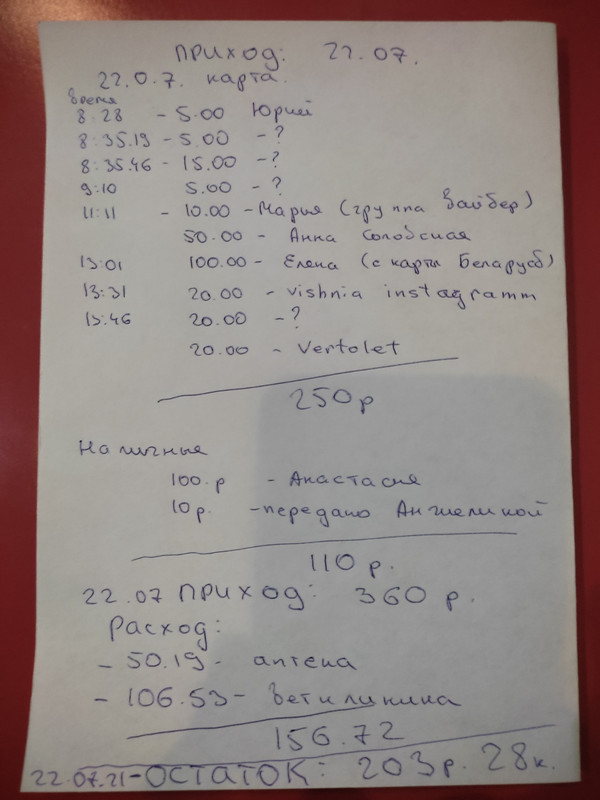 ПРИХОД: 22.07.
22.0.7. карта.
время
8:28 - 5.00 Юрий
8:35.19 - 5.00 - ?
8:35.46 - 15.00 - ?
9:10 5.00 - ?
11:11 - 10.00 - Марья (группа Вайбер)
50.00 - Анна Солобсная
13:01 100.00 - Елена (с карты Беларусб)
13:31 20.00 - vishnia instagramm
13:46 20.00 - ?
20.00 - Vertolet
250р
Наличные
100.р - Анастасия
10р. - передано Ангеликой
110 р.
22.07 ПРИХОД: 360 р.
Расход:
- 50.19 - аптека
- 106.53 - ветклиника
156.72
22.07.21 - ОСТАТОК: 203р. 28к.